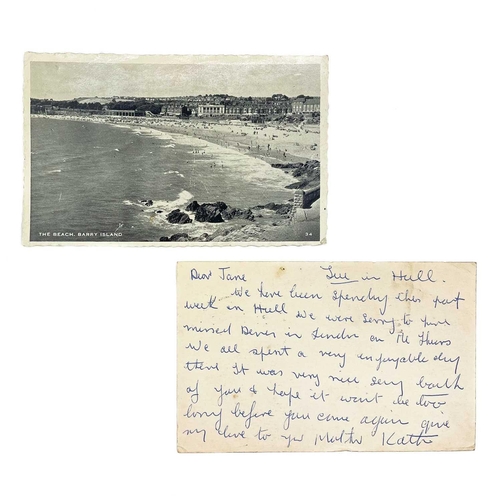 THE BEACH, BARRY ISLAND 34
Dear Jane in Hull.
We have been Spending this past
week in Hull We were Sorry to have
missed in London on the Thurs
We all spent a very enjoyable day
there It was very nice Seeing both
of you & hope it wont be too
long before you come again give
my love to yr Mother Kath